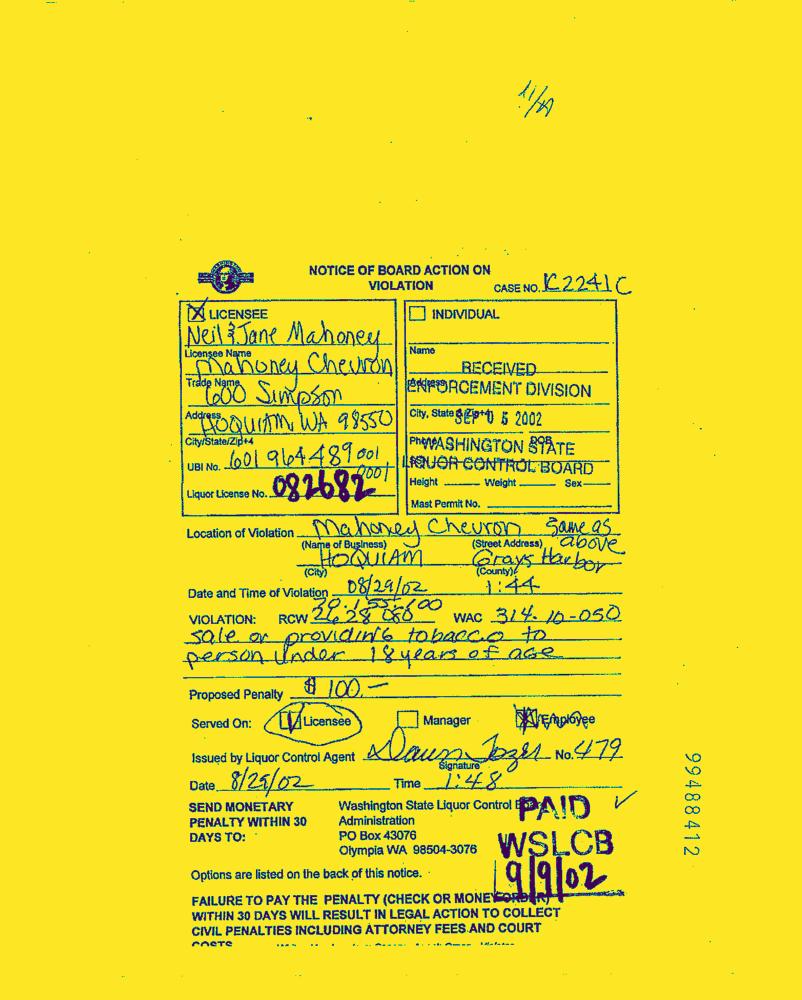 NOTICE OF BOARD ACTION ON
VIOLATION
CASE NO. K2241C
LICENSEE
Neil & Jane Mahoney
Licensee Name
Mahoney Chevron
Trade Name
600 Simpson
Address
HOQUIAM, WA 98550
City/State/Zip+4
UBI No. 601 964 489 001
0001
Liquor License No. 082682
INDIVIDUAL
Name
RECEIVED
Address
ENFORCEMENT DIVISION
City, State & Zip+4
SEP 0 5 2002
Ph DOB
WASHINGTON STATE
LIQUOR CONTROL BOARD
Height Weight Sex
Mast Permit No.
Location of Violation Mahoney Chevron Same as above
(Name of Business) (Street Address)
HOQUIAM Grays Harbor
(City) (County)
Date and Time of Violation 08/29/02 1:44
VIOLATION: RCW 26 28 080 WAC 314-10-050
sale or providing tobacco to
person under 18 years of age
Proposed Penalty $ 100.-
Served On: Licensee Manager Employee
Issued by Liquor Control Agent No. 479
Signature
Date 8/29/02 Time 1:48
SEND MONETARY
PENALTY WITHIN 30
DAYS TO:
Washington State Liquor Control Board
Administration
PO Box 43076
Olympia WA 98504-3076
PAID
WSLCB
9/9/02
Options are listed on the back of this notice.
FAILURE TO PAY THE PENALTY (CHECK OR MONEY ORDER)
WITHIN 30 DAYS WILL RESULT IN LEGAL ACTION TO COLLECT
CIVIL PENALTIES INCLUDING ATTORNEY FEES AND COURT
COSTS
99488412